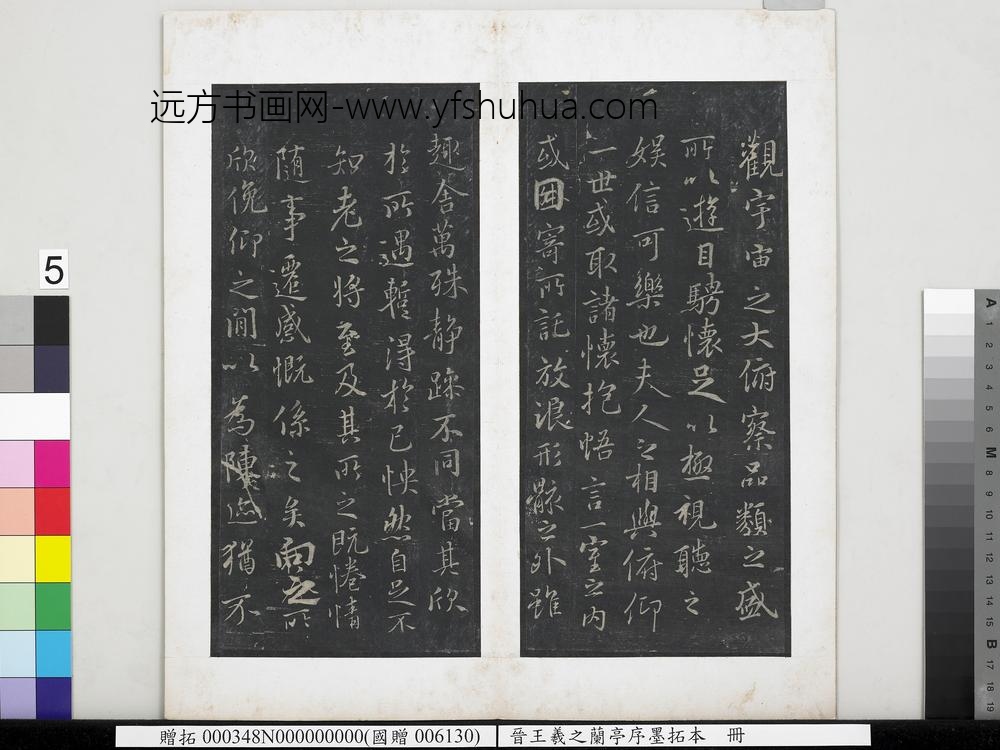 远方书画网-www.yfshuhua.com
觀宇宙之大俯察品類之盛
所以遊目騁懷足以極視聽之
娛信可樂也夫人之相與俯仰
一世或取諸懷抱悟言一室之內
或因寄所託放浪形骸之外雖
趣舍萬殊靜躁不同當其欣
於所遇輊得於己怏然自足不
知老之將至及其所之既惓情
隨事遷感慨係之矣向之所
欣俛仰之閒以為陳迹猶不
5
A
1
2
3
4
5
6
M
8
9
10
11
12
13
14
15
B
17
18
19
贈拓 000348N000000000(國贈 006130)
晉王羲之蘭亭序墨拓本 冊